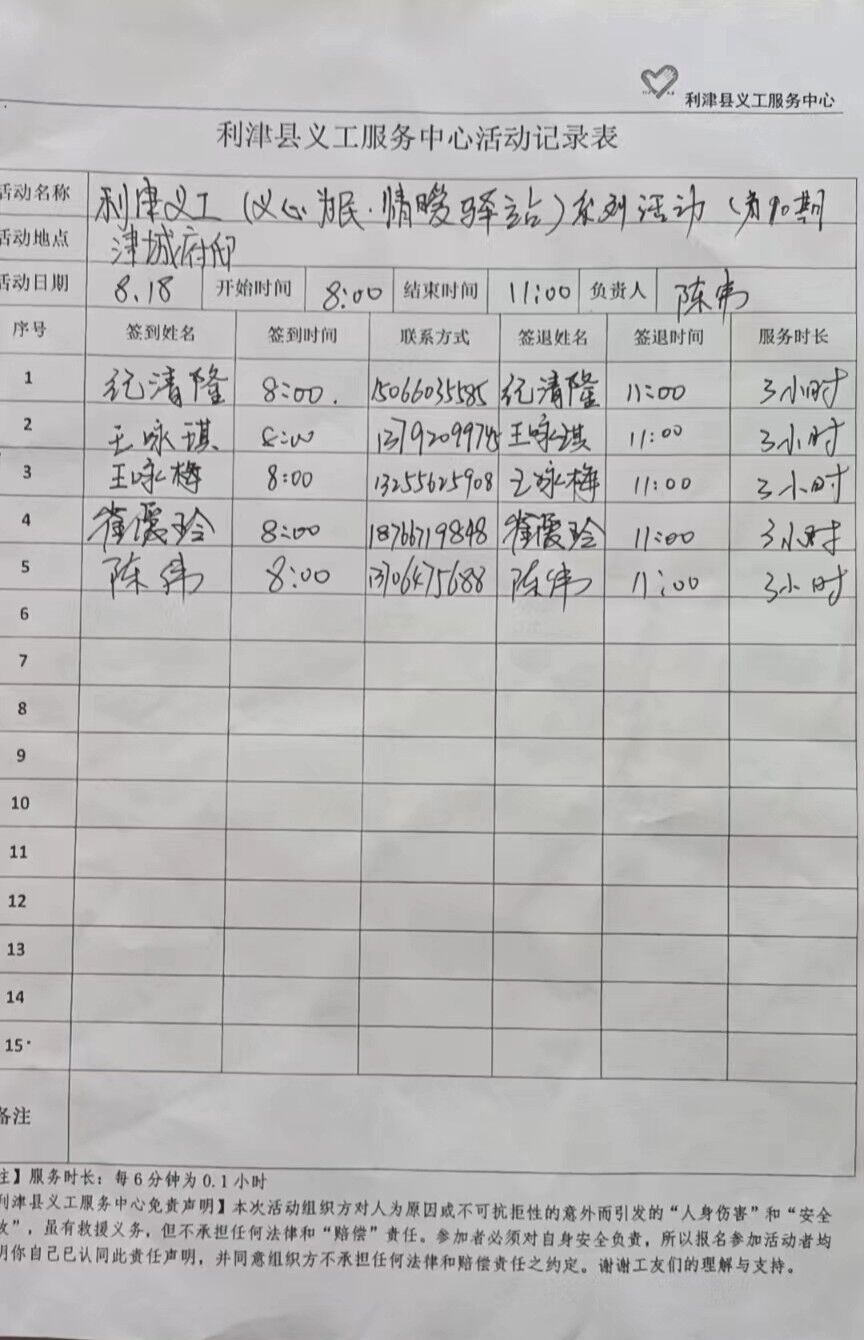 利津县义工服务中心
利津县义工服务中心活动记录表
活动名称 利津义工(义心为民·情暖驿站)系列活动(第90期
活动地点 津城府邸
活动日期 8.18 开始时间 8:00 结束时间 11:00 负责人 陈伟
序号 签到姓名 签到时间 联系方式 签退姓名 签退时间 服务时长
1 纪清隆 8:00. 15066035585 纪清隆 11:00 3小时
2 王咏琪 8:00 王咏琪 11:00 3小时
3 王咏梅 8:00 13255625908 王咏梅 11:00 3小时
4 崔爱玲 8:00 18766719848 崔爱玲 11:00 3小时
5 陈伟 8:00 13706475688 陈伟 11:00 3小时
6
7
8
9
10
11
12
13
14
15
备注
注】服务时长：每6分钟为0.1小时
利津县义工服务中心免责声明】本次活动组织方对人为原因或不可抗拒性的意外而引发的“人身伤害”和“安全
故”，虽有救援义务，但不承担任何法律和“赔偿”责任。参加者必须对自身安全负责，所以报名参加活动者均
明你自己已认同此责任声明，并同意组织方不承担任何法律和赔偿责任之约定。谢谢工友们的理解与支持。